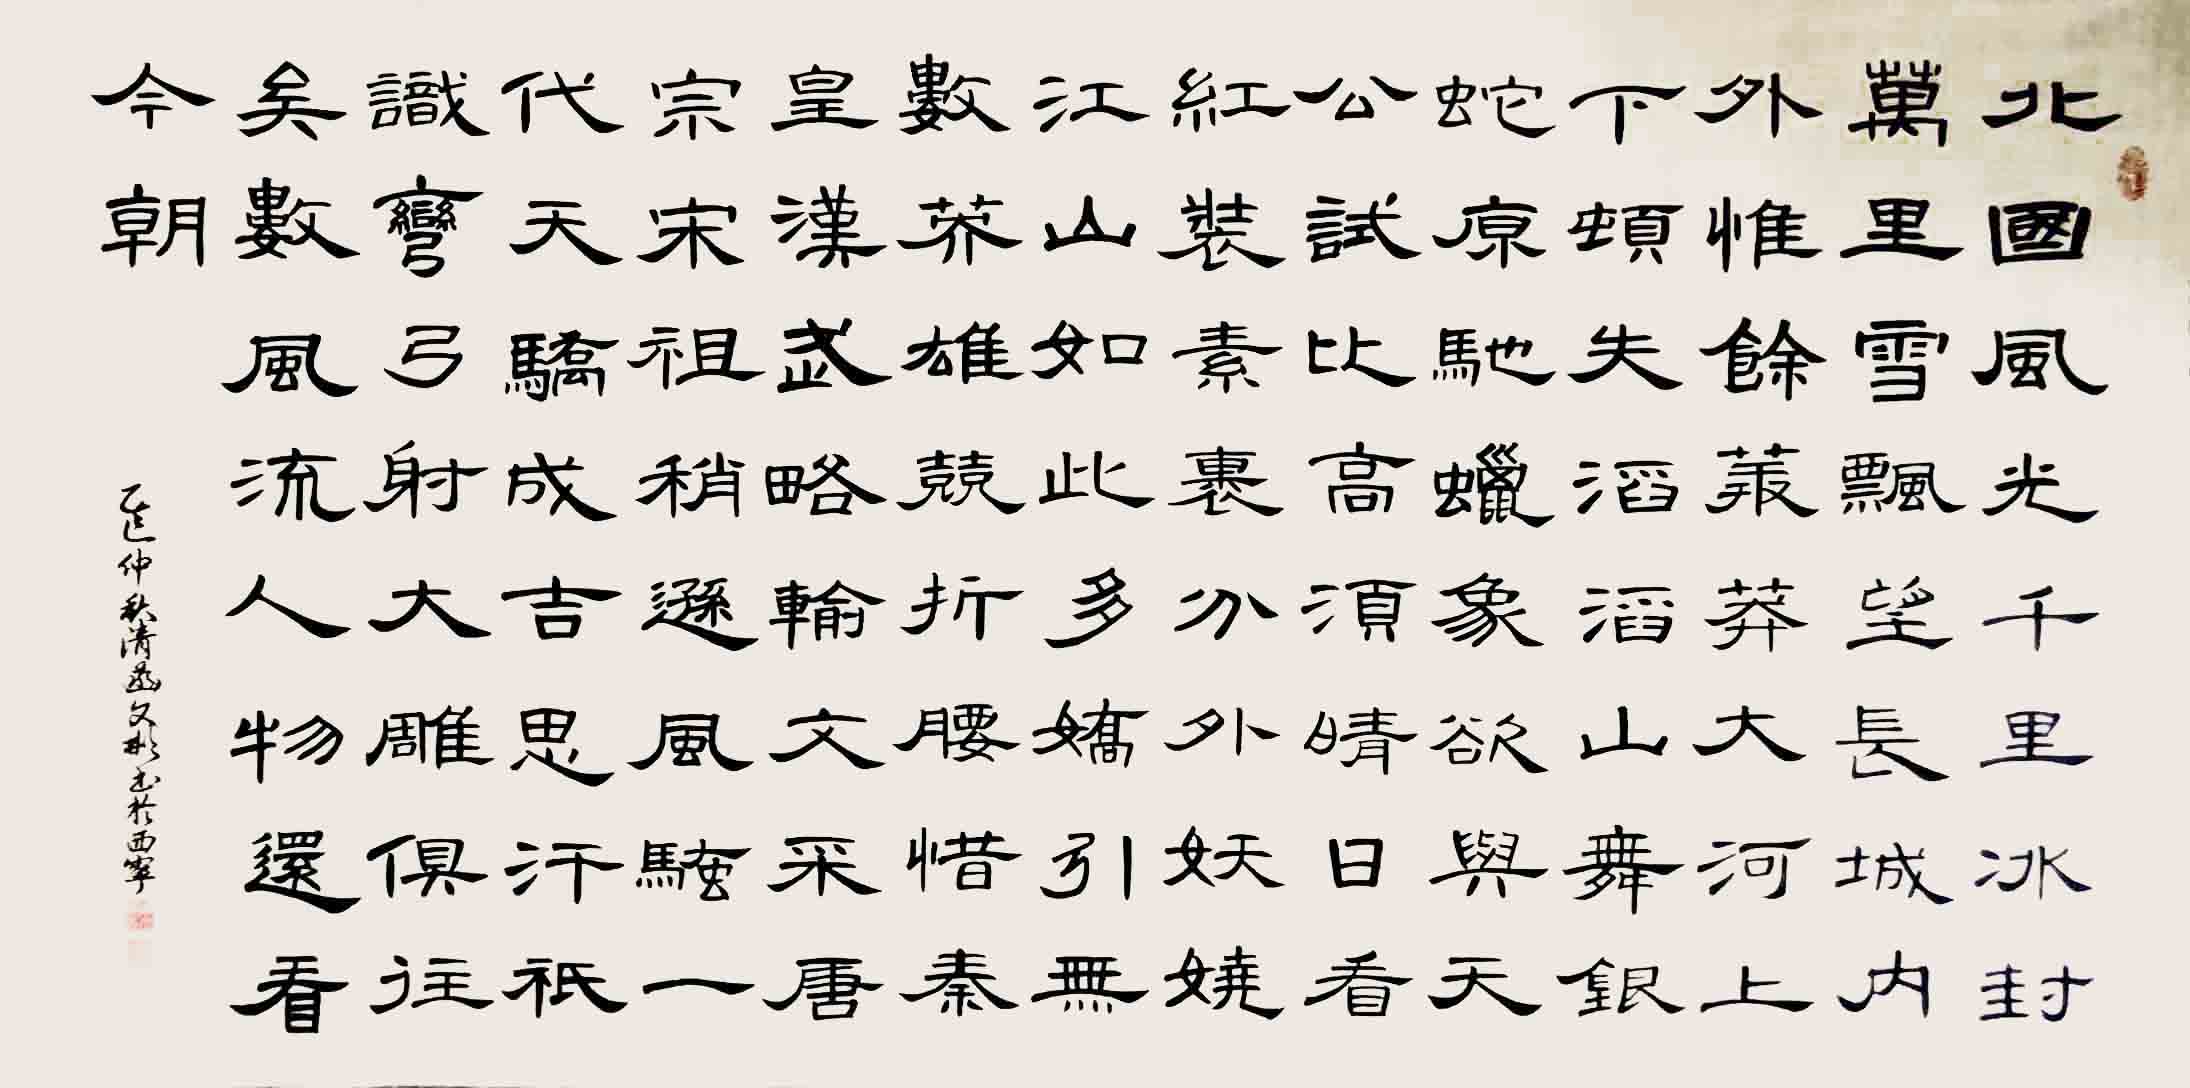 北國風光千里冰封
萬里雪飄望長城内
外惟餘莽莽大河上
下頓失滔滔山舞銀
蛇原馳蠟象欲與天
公試比高湏晴日看
紅裝素裹分外妖嬈
江山如此多嬌引無
數英雄競折腰惜秦
皇漢武略輸文采唐
宗宋祖稍遜風騷一
代天驕成吉思汗祇
識彎弓射大雕俱往
矣數風流人物還看
今朝
乙巳仲秋清文彬书於西寧